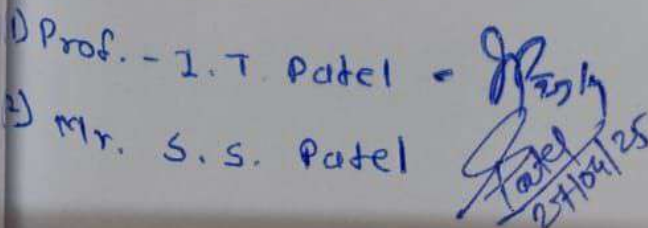 1) Prof. - I. T. Patel -
2) Mr. S. S. Patel
Patel
27/04/25